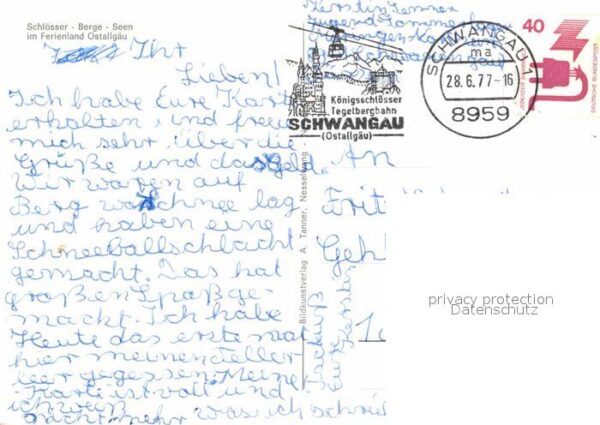 Schlösser - Berge - Seen
im Ferienland Ostallgäu
Ihr
Lieben!
Ich habe Eure Karte
erhalten und freue
mich sehr über die
Grüße und das Geld.
Wir waren auf
Berg wo Schnee lag
und haben eine
Schneeballschlacht
gemacht. Das hat
großen Spaß ge-
macht. Ich habe
Heute das erste mal
hier meinen teller
leer gegessen. Meine
Karte ist voll und
ich weiß
nicht mehr was ich schrei
Königsschlösser
Tegelbergbahn
SCHWANGAU
(Ostallgäu)
SCHWANGAU 1
ma
28.6.77-16
8959
40
DEUTSCHE BUNDESPOST
Bildkunstverlag A. Tanner, Nesselwang
An
Frit
Geh
1
Eure
privacy protection
Datenschutz